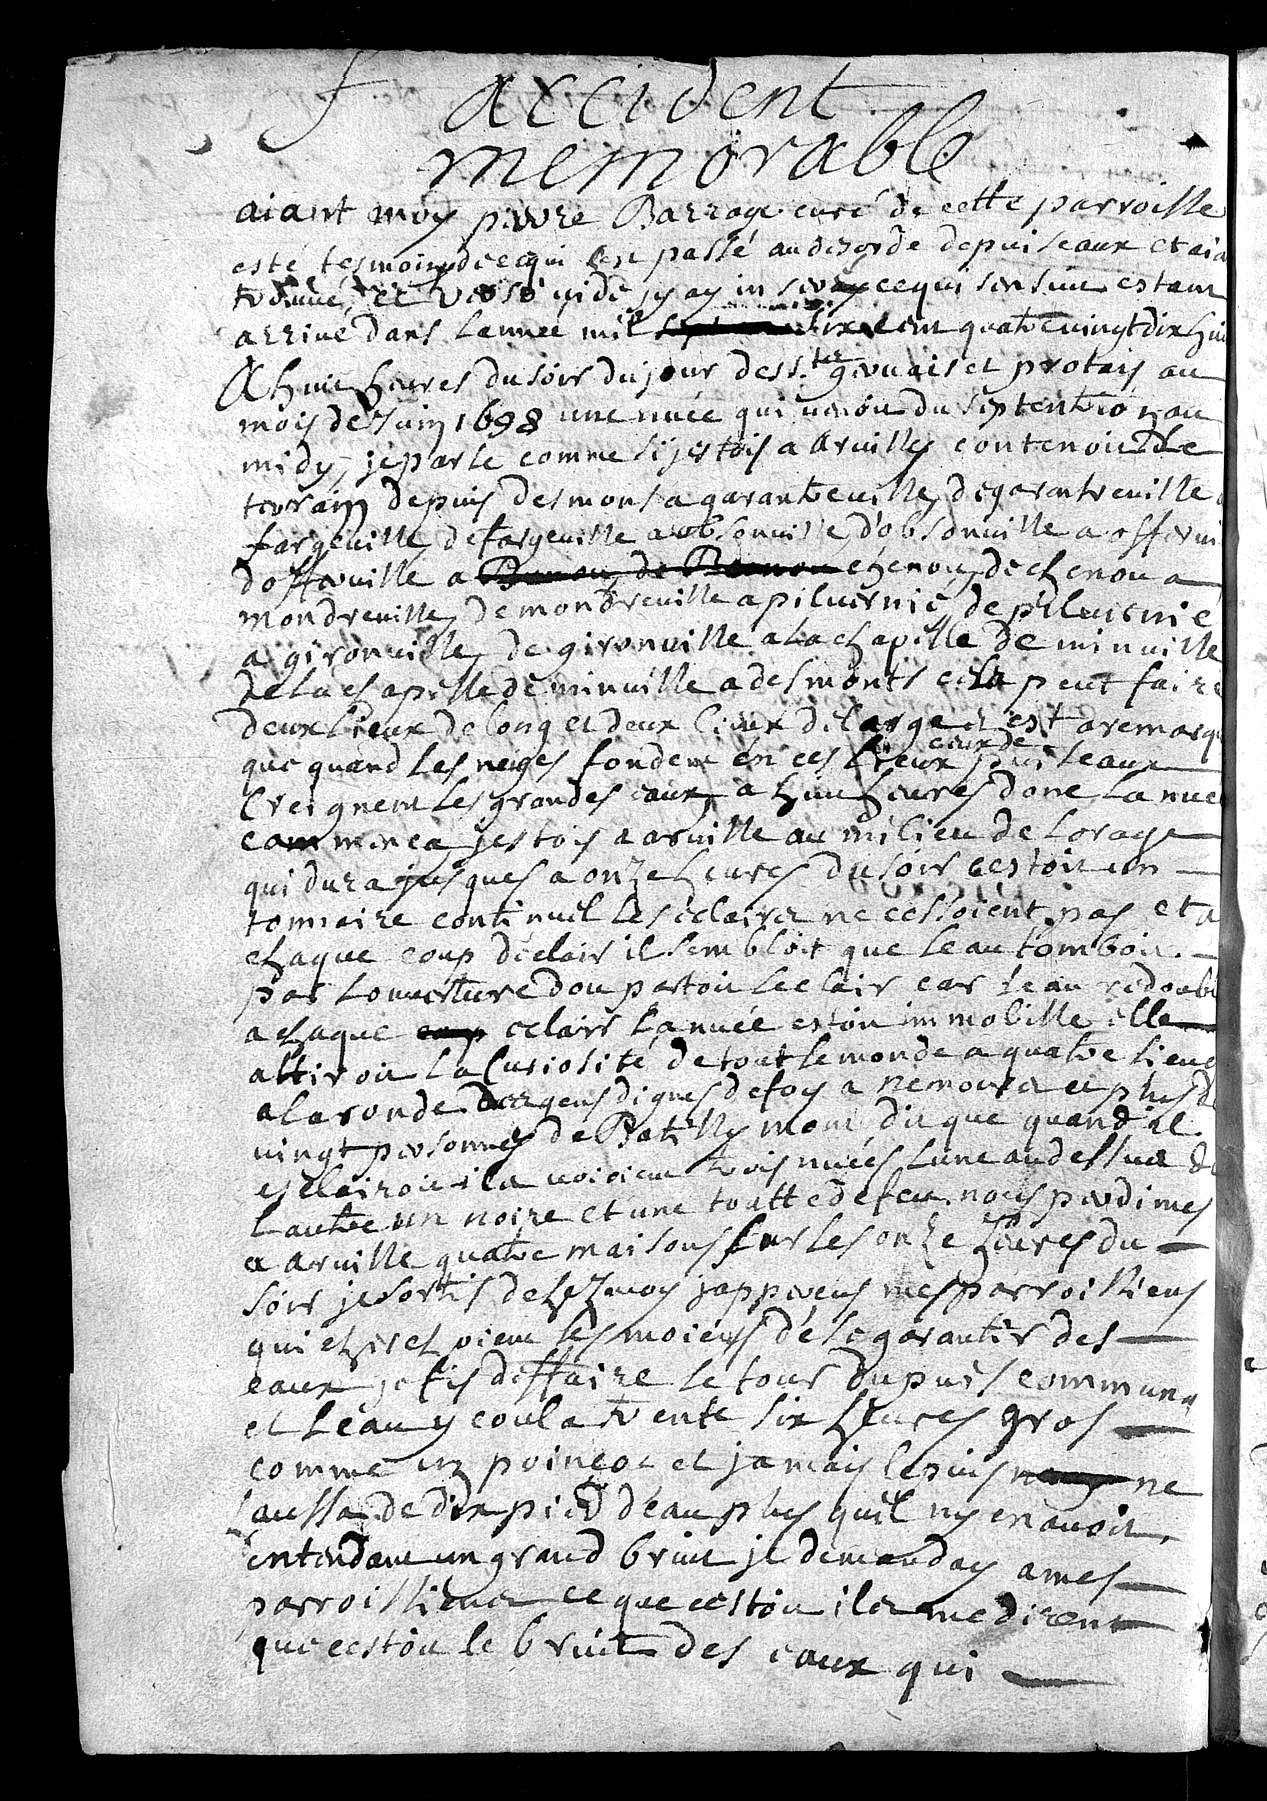 accident
memorable
aiant moy pierre Barrage curé de cette parroisse
esté tesmoin de ce qui sest passé au desordre de puiseaux et aia
trouvé ce vide jy ay inseray ce qui sensuit estant
arrivé dans lannee mil six cent quatre vingt dix hui
A huit heures du soir du jour des s.ts gervais et protais au
mois de Juin 1698 une nuée qui venoit du septentrion au
midy, je parle comme si jestois a arville contenoit le
terrain depuis desmonts a garantreville, de garantreville a
fargeville, de fargeville a obsonville, dobsonville a offervi
doffreville a Bunou, de Bunou chenou, de chenou a
mondreville, de mondreville a piluernié, de piluernié
a gironville, de gironville a la chapelle de minville
de la chapelle de minville a desmonts cela peut faire
deux lieux de long et deux lieux de large et est a remarq
que quand les neiges fondent en ces lieux ceux de puiseaux
Creignent les grandes eaux, a huit heures donc la nuee
commenca jestois a arville au milieu de lorage
qui dura jusques a onze heures du soir cestoit un
tonnaire continuel les eclairs ne cessoient pas et a
chaque coup declair il sembloit que leau tomboit
par louverture dou partoit leclair car leau redoubl
a chaque coup eclairs la nuée estoit immobille elle
attiroit la Curiosité de tout le monde a quatre lieues
a la ronde des gens dignes de foy a nemours et plus de
vingt personnes de Batilly mont dit que quand il
esclairoit ils voioient trois nuées lune au dessus de
lautre un noire et une toutte de feu. nous perdimes
a arville quatre maisons sur les onze heures du
soir je sortis de chez moy japperceus mes parroissiens
qui cherchoient les moiens de se garantir des
eaux je fis deffaire le tour du puis commun
et leau y coula trente six heures gros
comme un poincon et jamais le puis ne
aussa de dix pied deau plus quil ny en avoit
entendant un grand bruit je demanday a mes
parroissiens ce que cestoit ils me dirent
que cestoit le bruit des eaux qui